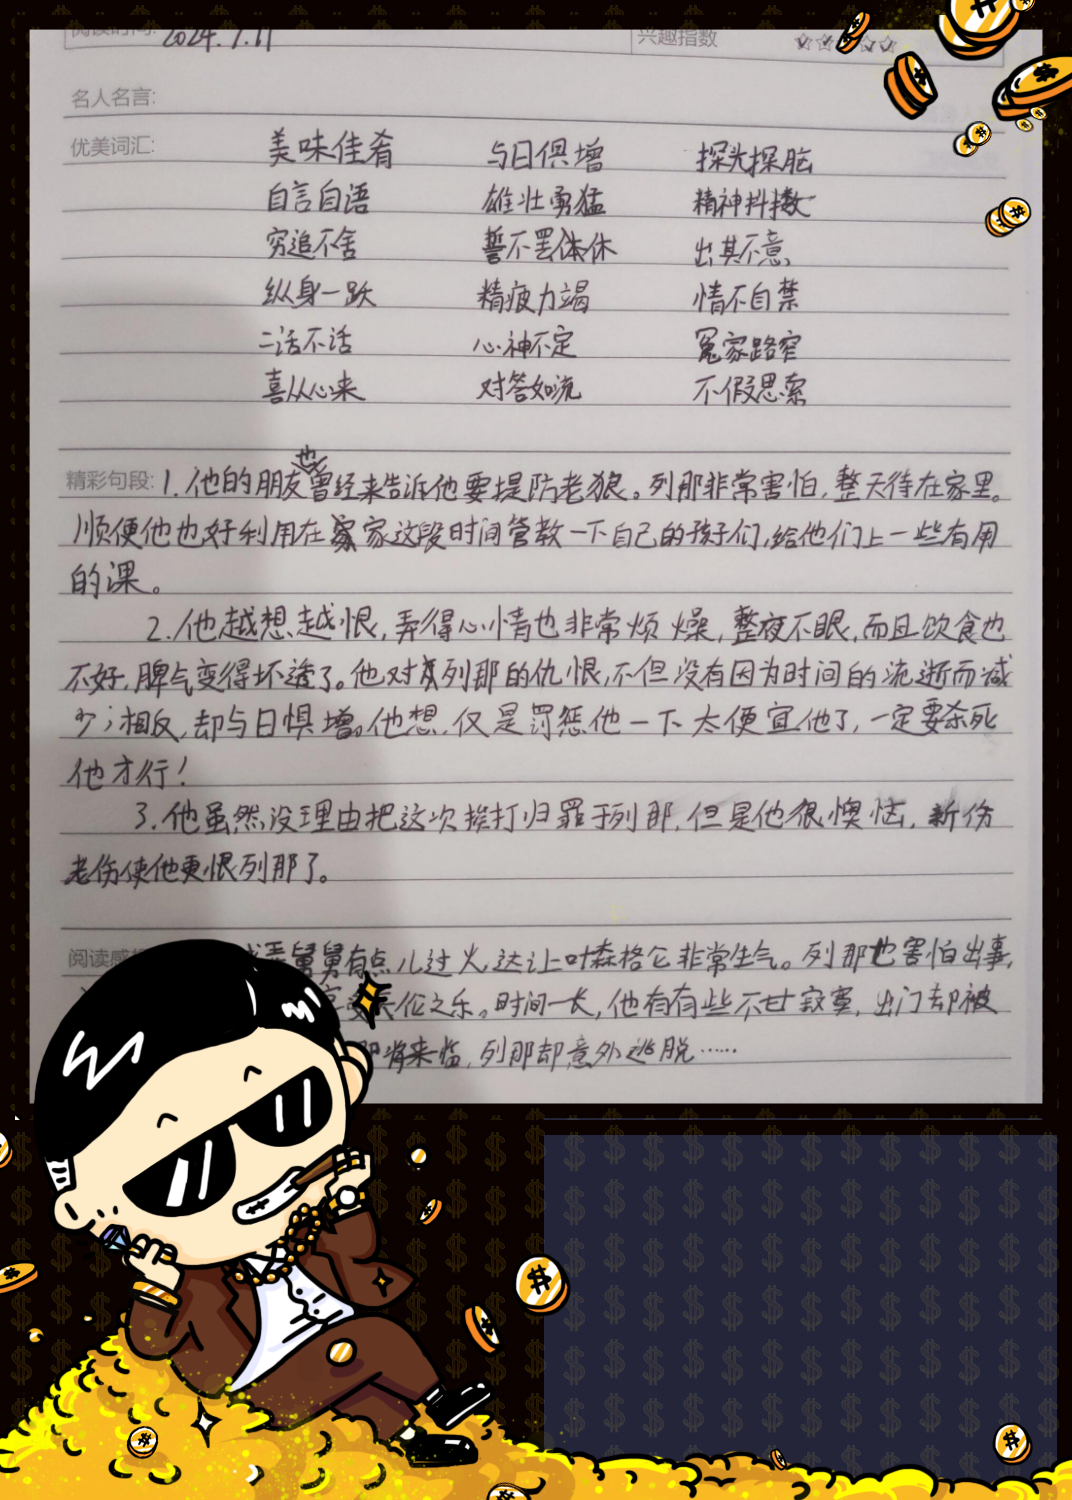 阅读时间: 2024.7.11 兴趣指数 ☆☆☆☆☆
名人名言:
优美词汇: 美味佳肴 与日俱增 探头探脑
自言自语 雄壮勇猛 精神抖擞
穷追不舍 誓不罢休休 出其不意
纵身一跃 精疲力竭 情不自禁
二话不话 心神不定 冤家路窄
喜从心来 对答如流 不假思索
精彩句段: 1.他的朋友也曾经来告诉他要提防老狼。列那非常害怕,整天待在家里。
顺便他也好利用在家这段时间管教一下自己的孩子们,给他们上一些有用
的课。
2.他越想越恨,弄得心情也非常烦燥,整夜不眠,而且饮食也
不好,脾气变得坏透了。他对列那的仇恨,不但没有因为时间的流逝而减
少;相反,却与日惧增。他想,仅是罚惩他一下太便宜他了,一定要杀死
他才行!
3.他虽然没理由把这次挨打归罪于列那,但是他很懊恼,新伤
老伤使他更恨列那了。
阅读感 弄舅舅有点儿过火,这让叶森格仑非常生气。列那也害怕出事,
伦之乐。时间一长,他有有些不甘寂寞,出门却被
即将来临,列那却意外逃脱……